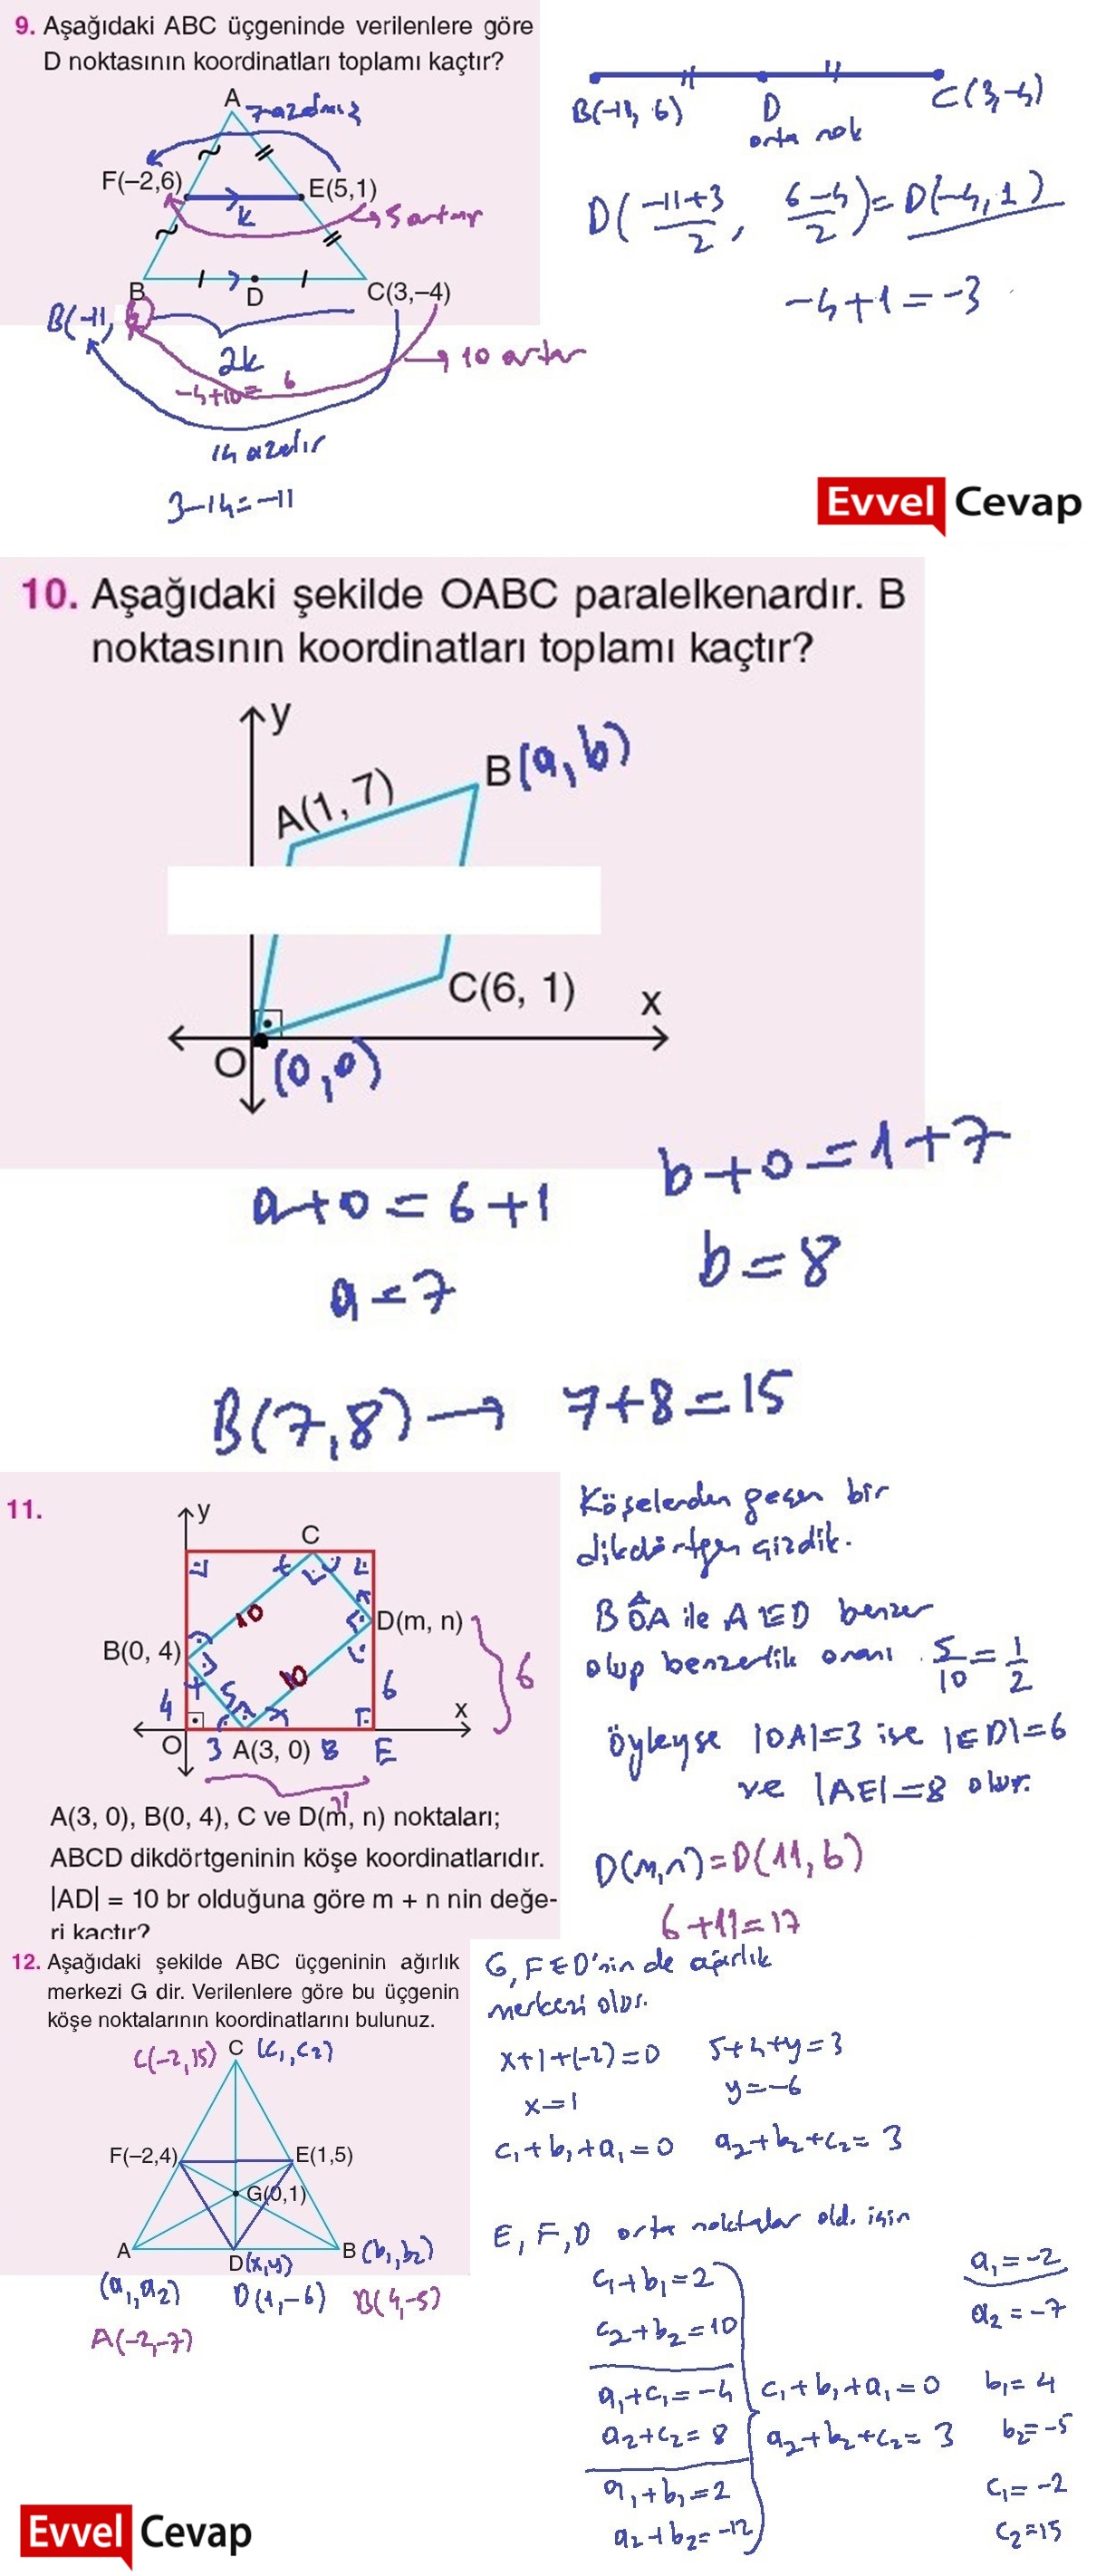 9. Aşağıdaki ABC üçgeninde verilenlere göre
D noktasının koordinatları toplamı kaçtır?
A
7 azalmış
F(−2,6)
E(5,1)
k
5 artmış
B
D
C(3,−4)
B(-11, 6)
2k
10 artar
-4+10= 6
14 azalır
3-14=-11
B(-11, 6)
D
C(3,-4)
orta nok
D(-11+3/2, 6-4/2)=D(-4,1)
-4+1=-3
Evvel Cevap
10. Aşağıdaki şekilde OABC paralelkenardır. B
noktasının koordinatları toplamı kaçtır?
y
B(a,b)
A(1, 7)
C(6, 1)
x
O
(0,0)
a+0=6+1
b+0=1+7
a=7
b=8
B(7,8)→ 7+8=15
11.
y
C
10
D(m, n)
B(0, 4)
10
6
6
4
5
x
x
O
3
A(3, 0)
8
E
11
A(3, 0), B(0, 4), C ve D(m, n) noktaları;
ABCD dikdörtgeninin köşe koordinatlarıdır.
|AD| = 10 br olduğuna göre m + n nin değe-
ri kaçtır?
Köşelerden geçen bir
dikdörtgen çizdik.
BOA ile AED benzer
olup benzerlik oranı 5/10=1/2
Öyleyse |OA|=3 ise |ED|=6
ve |AE|=8 olur.
D(m,n)=D(11,6)
6+11=17
12. Aşağıdaki şekilde ABC üçgeninin ağırlık
merkezi G dir. Verilenlere göre bu üçgenin
köşe noktalarının koordinatlarını bulunuz.
C(-2,15)
C
(c₁,c₂)
F(−2,4)
E(1,5)
G(0,1)
A
D(x,y)
B(b₁,b₂)
(a₁,a₂)
D(1,-6)
B(4,-5)
A(-2,-7)
G, FED'nin de ağırlık
merkezi olur.
x+1+(-2)=0
5+4+y=3
x=1
y=-6
c₁+b₁+a₁=0
a₂+b₂+c₂=3
E, F, D orta noktalar old. için
c₁+b₁=2
c₂+b₂=10
a₁+c₁=-4
a₂+c₂=8
a₁+b₁=2
a₂+b₂=-12
c₁+b₁+a₁=0
a₂+b₂+c₂=3
a₁=-2
a₂=-7
b₁=4
b₂=-5
c₁=-2
c₂=15
Evvel Cevap